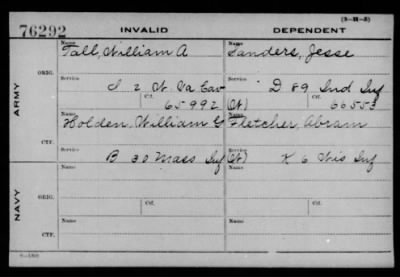 (3-M-3)
76292 INVALID DEPENDENT
Name Name
Tall, William A Sanders, Jesse
ORIG.
Service Service
I 2 W. Va Cav D 89 Ind Inf
Ctf. Ctf.
65992 (W) 66553
ARMY
Name Name
Holden, William G Fletcher, Abram
CTF.
Service Service
B 30 Mass Inf (W) K 6 Wis Inf
Name Name
ORIG.
Service Ctf. Service Ctf.
NAVY
Name Name
CTF.
Service Service